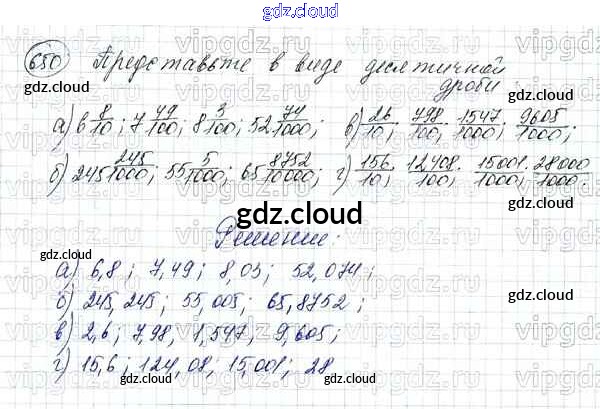 gdz.cloud
650 Представьте в виде десятичной
дроби:
а) 6 8/10; 7 49/100; 8 3/100; 52 74/1000; в) 26/10; 798/100; 1547/1000; 9605/1000;
б) 245 245/1000; 55 5/1000; 65 8752/10000; г) 156/10; 12408/100; 15001/1000; 28000/1000.
gdz.cloud
Решение:
а) 6,8; 7,49; 8,03; 52,074;
б) 245,245; 55,005; 65,8752;
в) 2,6; 7,98, 1,547, 9,605;
г) 15,6; 124,08; 15,001; 28
gdz.cloud